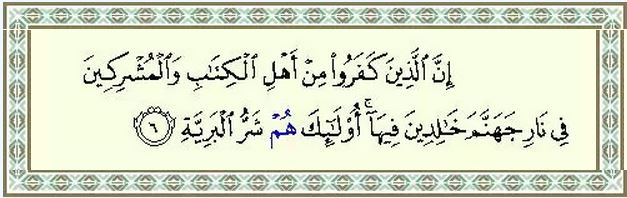 إِنَّ ٱلَّذِينَ كَفَرُوا۟ مِنْ أَهْلِ ٱلْكِتَـٰبِ وَٱلْمُشْرِكِينَ
فِى نَارِ جَهَنَّمَ خَـٰلِدِينَ فِيهَآ ۚ أُو۟لَـٰٓئِكَ هُمْ شَرُّ ٱلْبَرِيَّةِ ٦